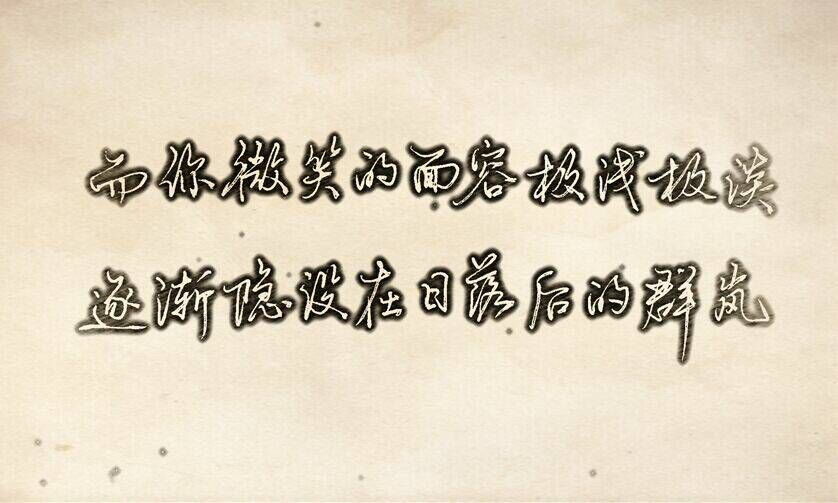 而你微笑的面容极浅极淡
逐渐隐没在日落后的群岚